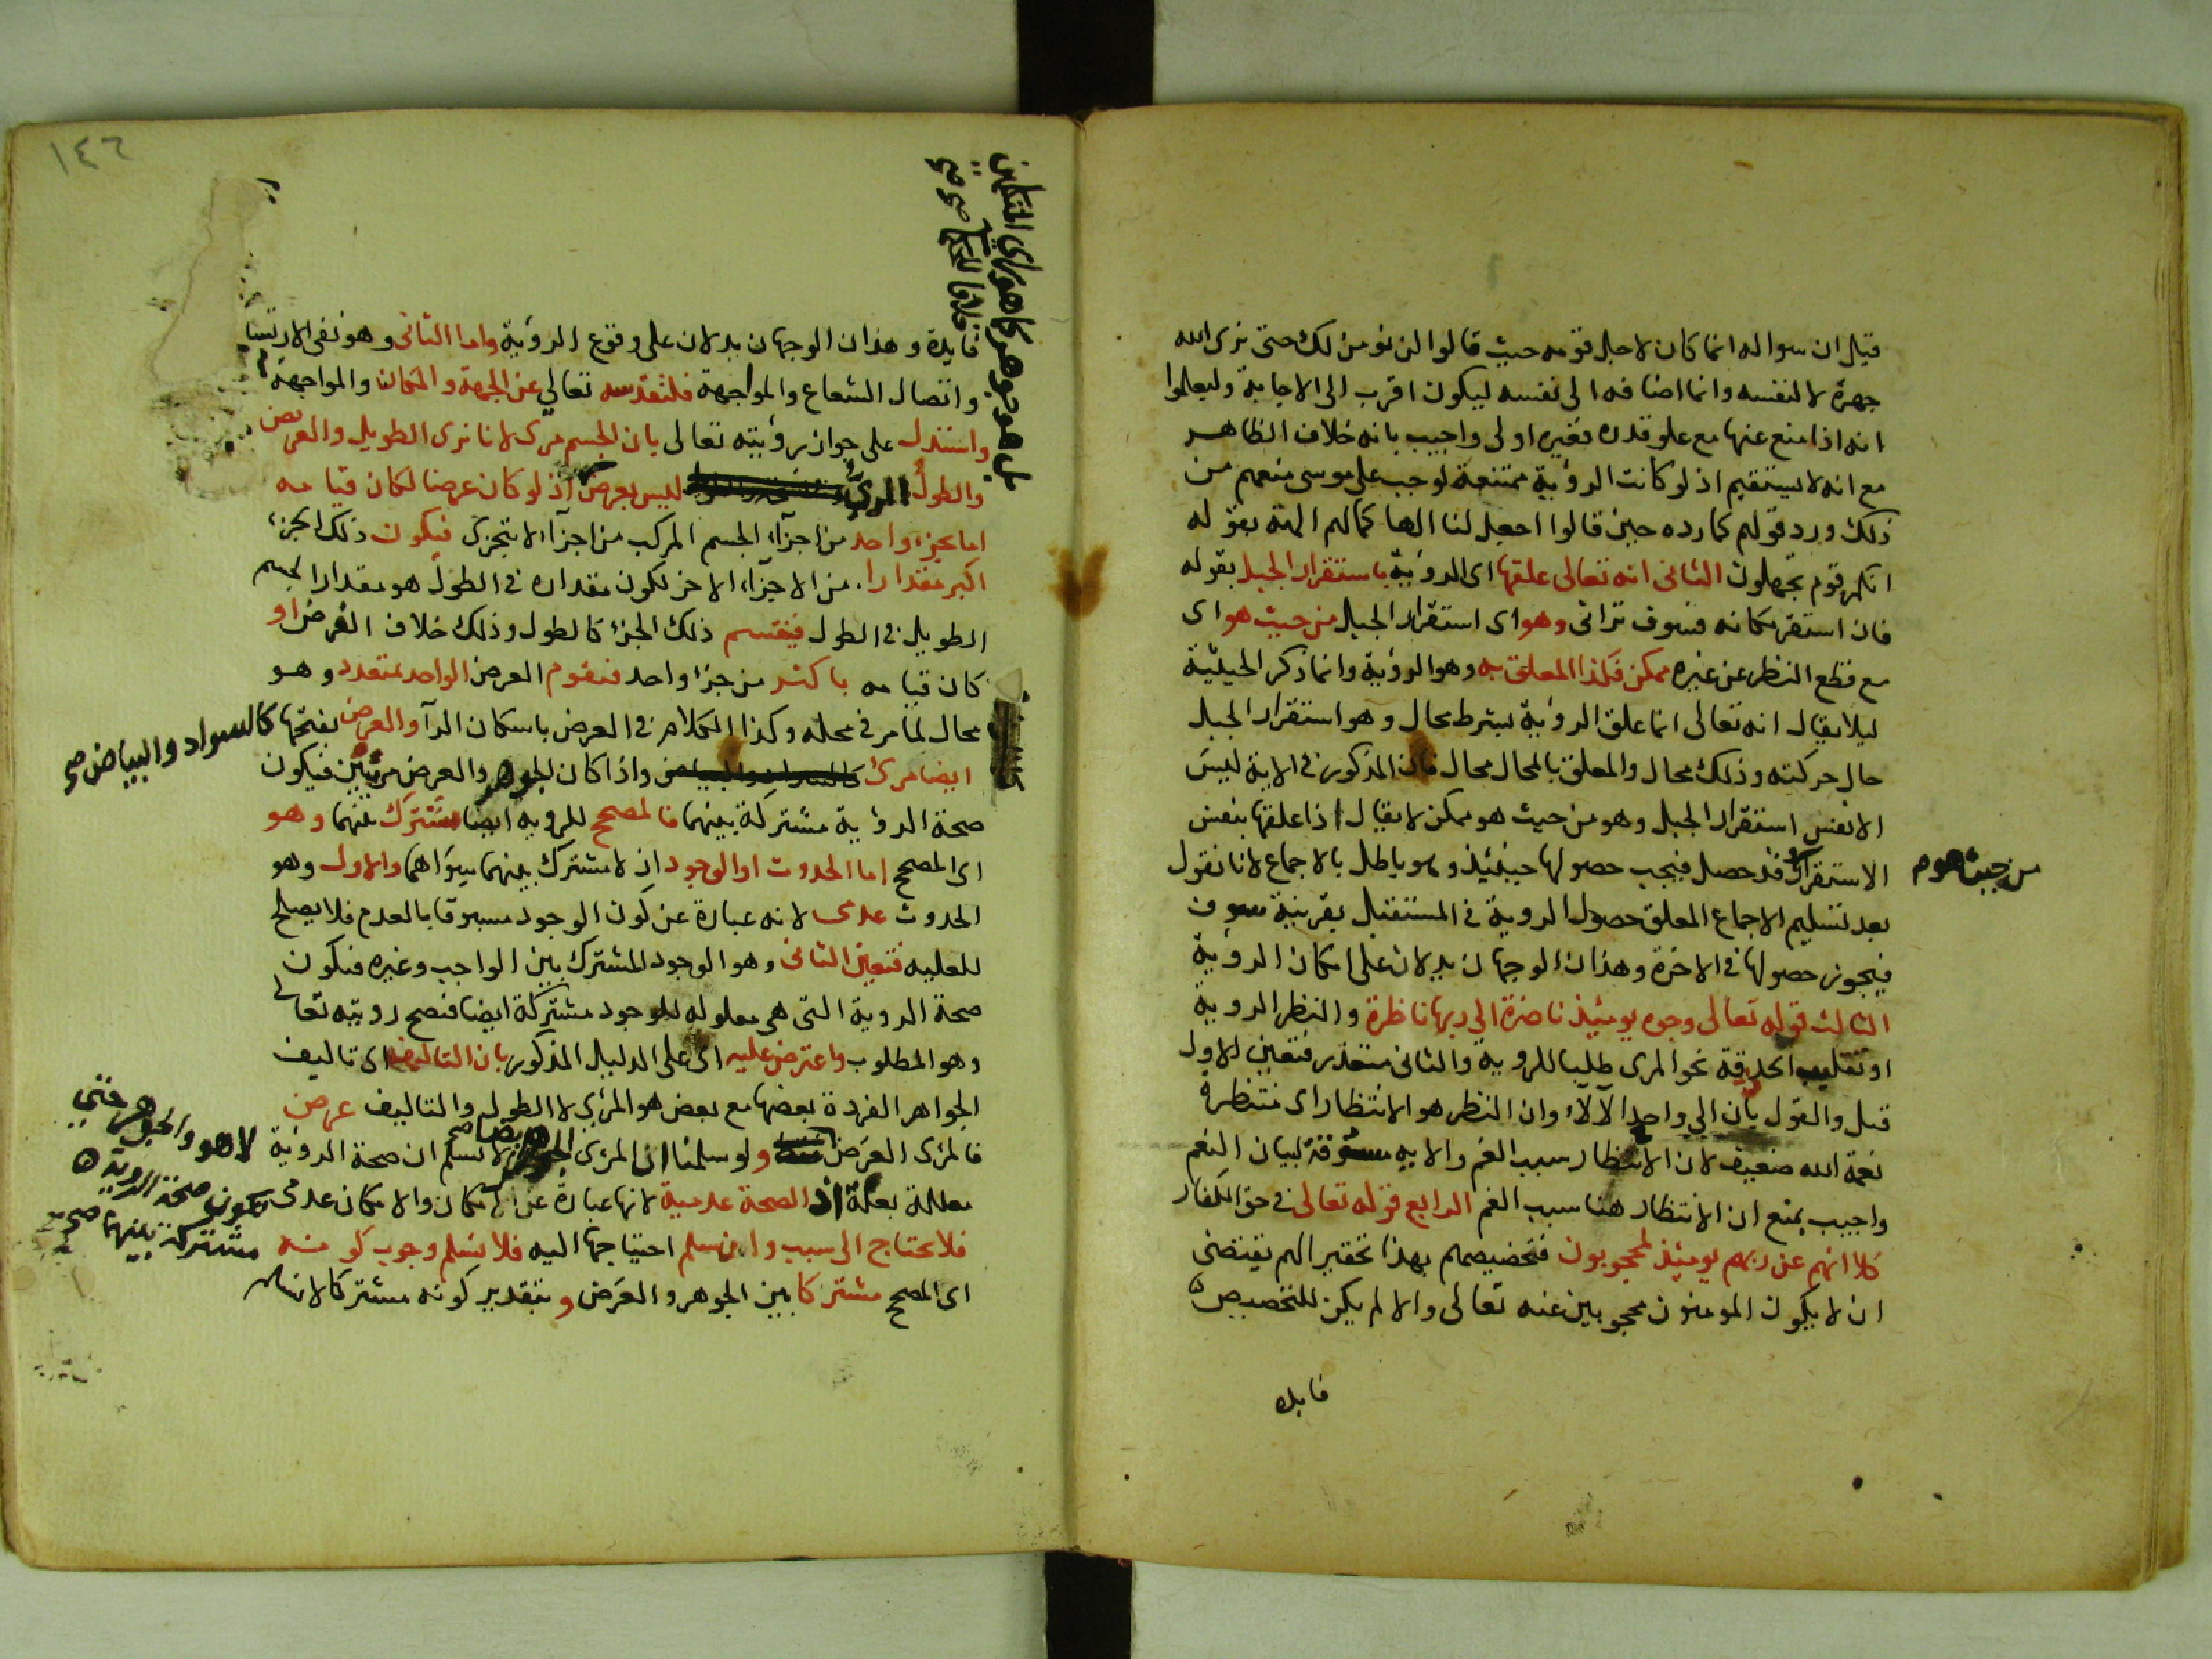 قيل ان سواله انما كان لاجل قومه حيث قالوا لن نومن لك حتى نرى الله
جهرة لا لنفسه وانما اضافه الى نفسه ليكون اقرب الى الاجابة وليعلموا
انه اذا منع عنها مع علو قدره فغيره اولى واجيب بانه خلاف الظاهر
مع انه لا يستقيم اذ لو كانت الرؤية ممتنعة لوجب على موسى منعهم من
ذلك ورد قولهم كما رده حين قالوا اجعل لنا الها كما لهم الهة بقوله
انكم قوم تجهلون الثانى انه تعالى علقها اى الرؤية باستقرار الجبل بقوله
فان استقر مكانه فسوف ترانى وهو اى استقرار الجبل من حيث هو اى
مع قطع النظر عن غيره ممكن فكذا المعلق به وهو الرؤية وانما ذكر الحيثية
ليلا يقال انه تعالى انما علق الرؤية بشرط محال وهو استقرار الجبل
حال حركته وذلك محال والمعلق بالمحال محال فان المذكور فى الاية ليس
الا نفس استقرار الجبل وهو من حيث هو ممكن لا يقال اذا علقها بنفس
الاستقرار وقد حصل فيجب حصولها حينئذ وهو باطل بالاجماع لانا نقول
من حيث هو م
بعد تسليم الاجماع المعلق حصول الروية فى المستقبل بقرينة سوف
فيجوز حصولها فى الاخرة وهذان الوجهان يدلان على امكان الرؤية
الثالث قوله تعالى وجوه يومئذ ناضرة الى ربها ناظرة والنظر الروية
او تقليب الحدقة نحو المرى طلبا للروية والثانى متعذر فتعين الاول
قيل والقول بان الى واحد الآلآء وان النظر هو الانتظار اى منتظرة
نعمة الله ضعيف لان الانتظار سبب الغم والايه مسوقة لبيان النعم
واجيب بمنع ان الانتظار هنا سبب الغم الرابع قوله تعالى فى حق الكفار
كلا انهم عن ربهم يومئذ لمحجوبون فتخصيصهم بهذا تحقير الهم يقتضى
ان لا يكون المومنون محجوبين عنه تعالى والا لم يكن للتخصيص
فايدة
١٤٦
بل هو جوهر كما هو راى المتكلمين
خلافا للحكما صح صح
فايدة وهذان الوجهان يدلان على وقوع الرؤية واما الثانى وهو نفى الارتسام
واتصال الشعاع والمواجهة فلتقدسه تعالى عن الجهة والمكان والمواجهة
واستدل على جواز رؤيته تعالى بان الجسم مرى لانا نرى الطويل والعريض
والطول المرئى ليس بعرض اذ لو كان عرضا لكان قيامه
اما بجزء واحد من اجزاء الجسم المركب من اجزاء لا تتجزى فيكون ذلك الجزء
اكبر مقدارا من الاجزاء الاخر لكون مقداره فى الطول هو مقدار الجسم
الطويل فى الطول فينقسم ذلك الجزء كالطول وذلك خلاف الفرض او
كان قيامه باكثر من جزء واحد فيقوم العرض الواحد بمتعدد وهو
محال لما مر فى محله وكذا الكلام فى العرض باسكان الرآ والعرض بفتحها كالسواد والبياض صح
ايضا مرئ كالسواد والبياض واذا كان الجوهر والعرض مرئيين فيكون
صحة الرؤية مشتركة بينهما فالمصحح للروية ايضا مشترك بينهما وهو
اى المصحح اما الحدوث او الوجود اذ لا مشترك بينهما سواهما والاول وهو
الحدوث عدمى لانه عبارة عن كون الوجود مسبوقا بالعدم فلا يصلح
للعليه فتعين الثانى وهو الوجود المشترك بين الواجب وغيره فيكون
صحة الروية التى هى معلوله للوجود مشتركة ايضا فتصح رويته تعالى
وهو المطلوب واعترض عليه اى على الدليل المذكور بان التاليف اى تاليف
الجواهر الفردة بعضها مع بعض هو المرئى لا الطول والتاليف عرض
فالمرئى العرض ولو سلمنا ان المرئى الجوهر ايضا صح لا نسلم ان صحة الرؤية
لا هو والجوهر حتى
تكون صحة الروية
مشتركة بينهما صح
معللة بعلة اذ الصحة عدمية لانها عبارة عن الامكان والامكان عدمى
فلا يحتاج الى سبب وان سلم احتياجها اليه فلا نسلم وجوب كونه
اى المصحح مشتركا بين الجوهر والعرض وبتقدير كونه مشتركا لا نسلم